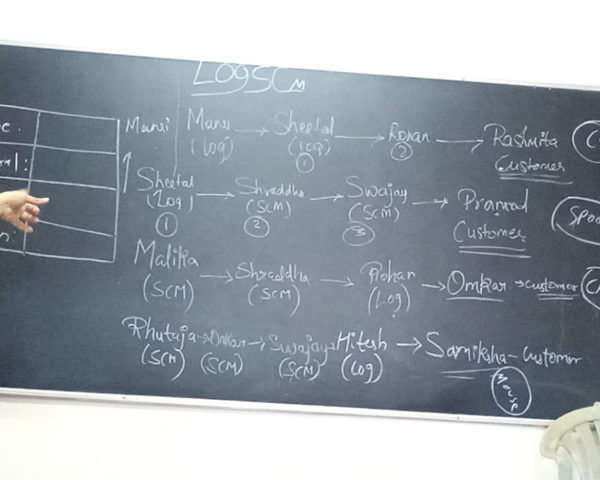 LOGSCM
Mansi Mansi → Sheetal → Rohan → Rashmita
(Log) (Log) Customer
① ②
Sheetal → Shraddha → Swajay → Pramod
(Log) (SCM) (SCM) Customer
① ② ③
Malika → Shraddha → Rohan → Omkar → customer
(SCM) (SCM) (Log)
Rhutuja → Omkar → Swajay → Hitesh → Samiksha - customer
(SCM) (SCM) (SCM) (Log)